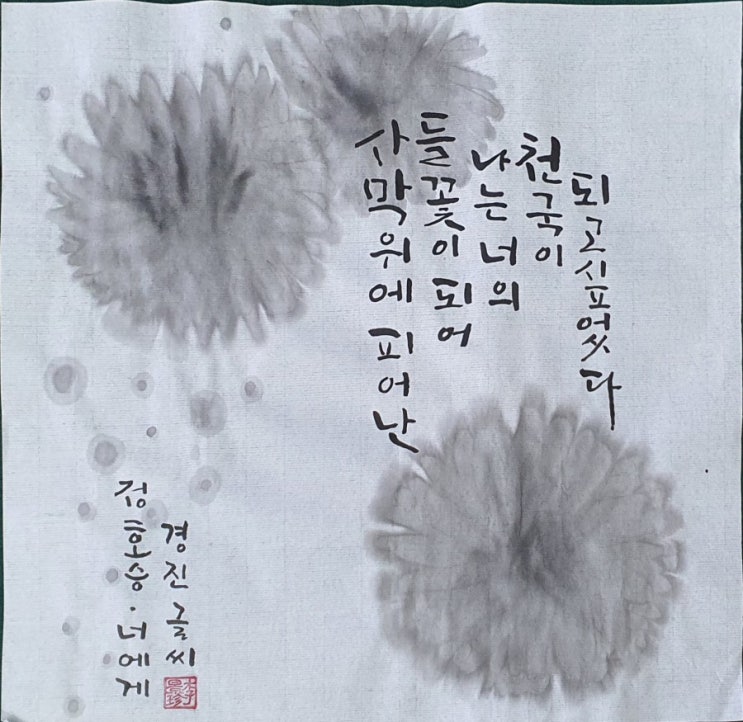 사막위에 피어난
들꽃이 되어
나는 너의
천국이
되고싶었다
정호승 · 너에게
경진 글씨